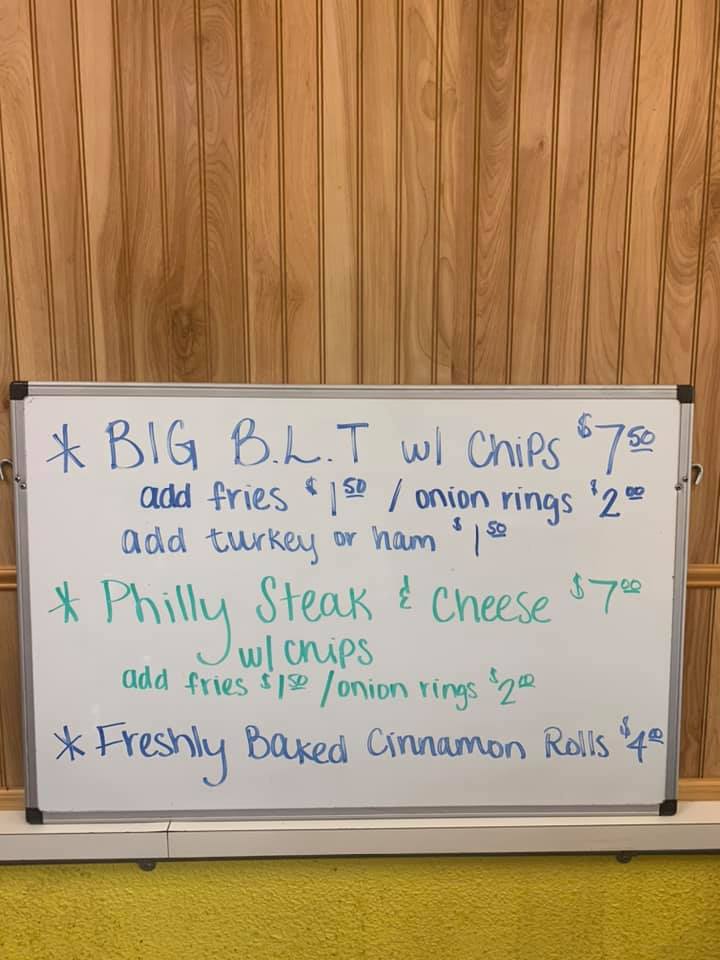 * BIG B.L.T w/ Chips $7.50
add fries $1.50 / onion rings $2.00
add turkey or ham $1.50
* Philly Steak & Cheese $7.00
w/ chips
add fries $1.50 / onion rings $2.00
* Freshly Baked Cinnamon Rolls $4.00